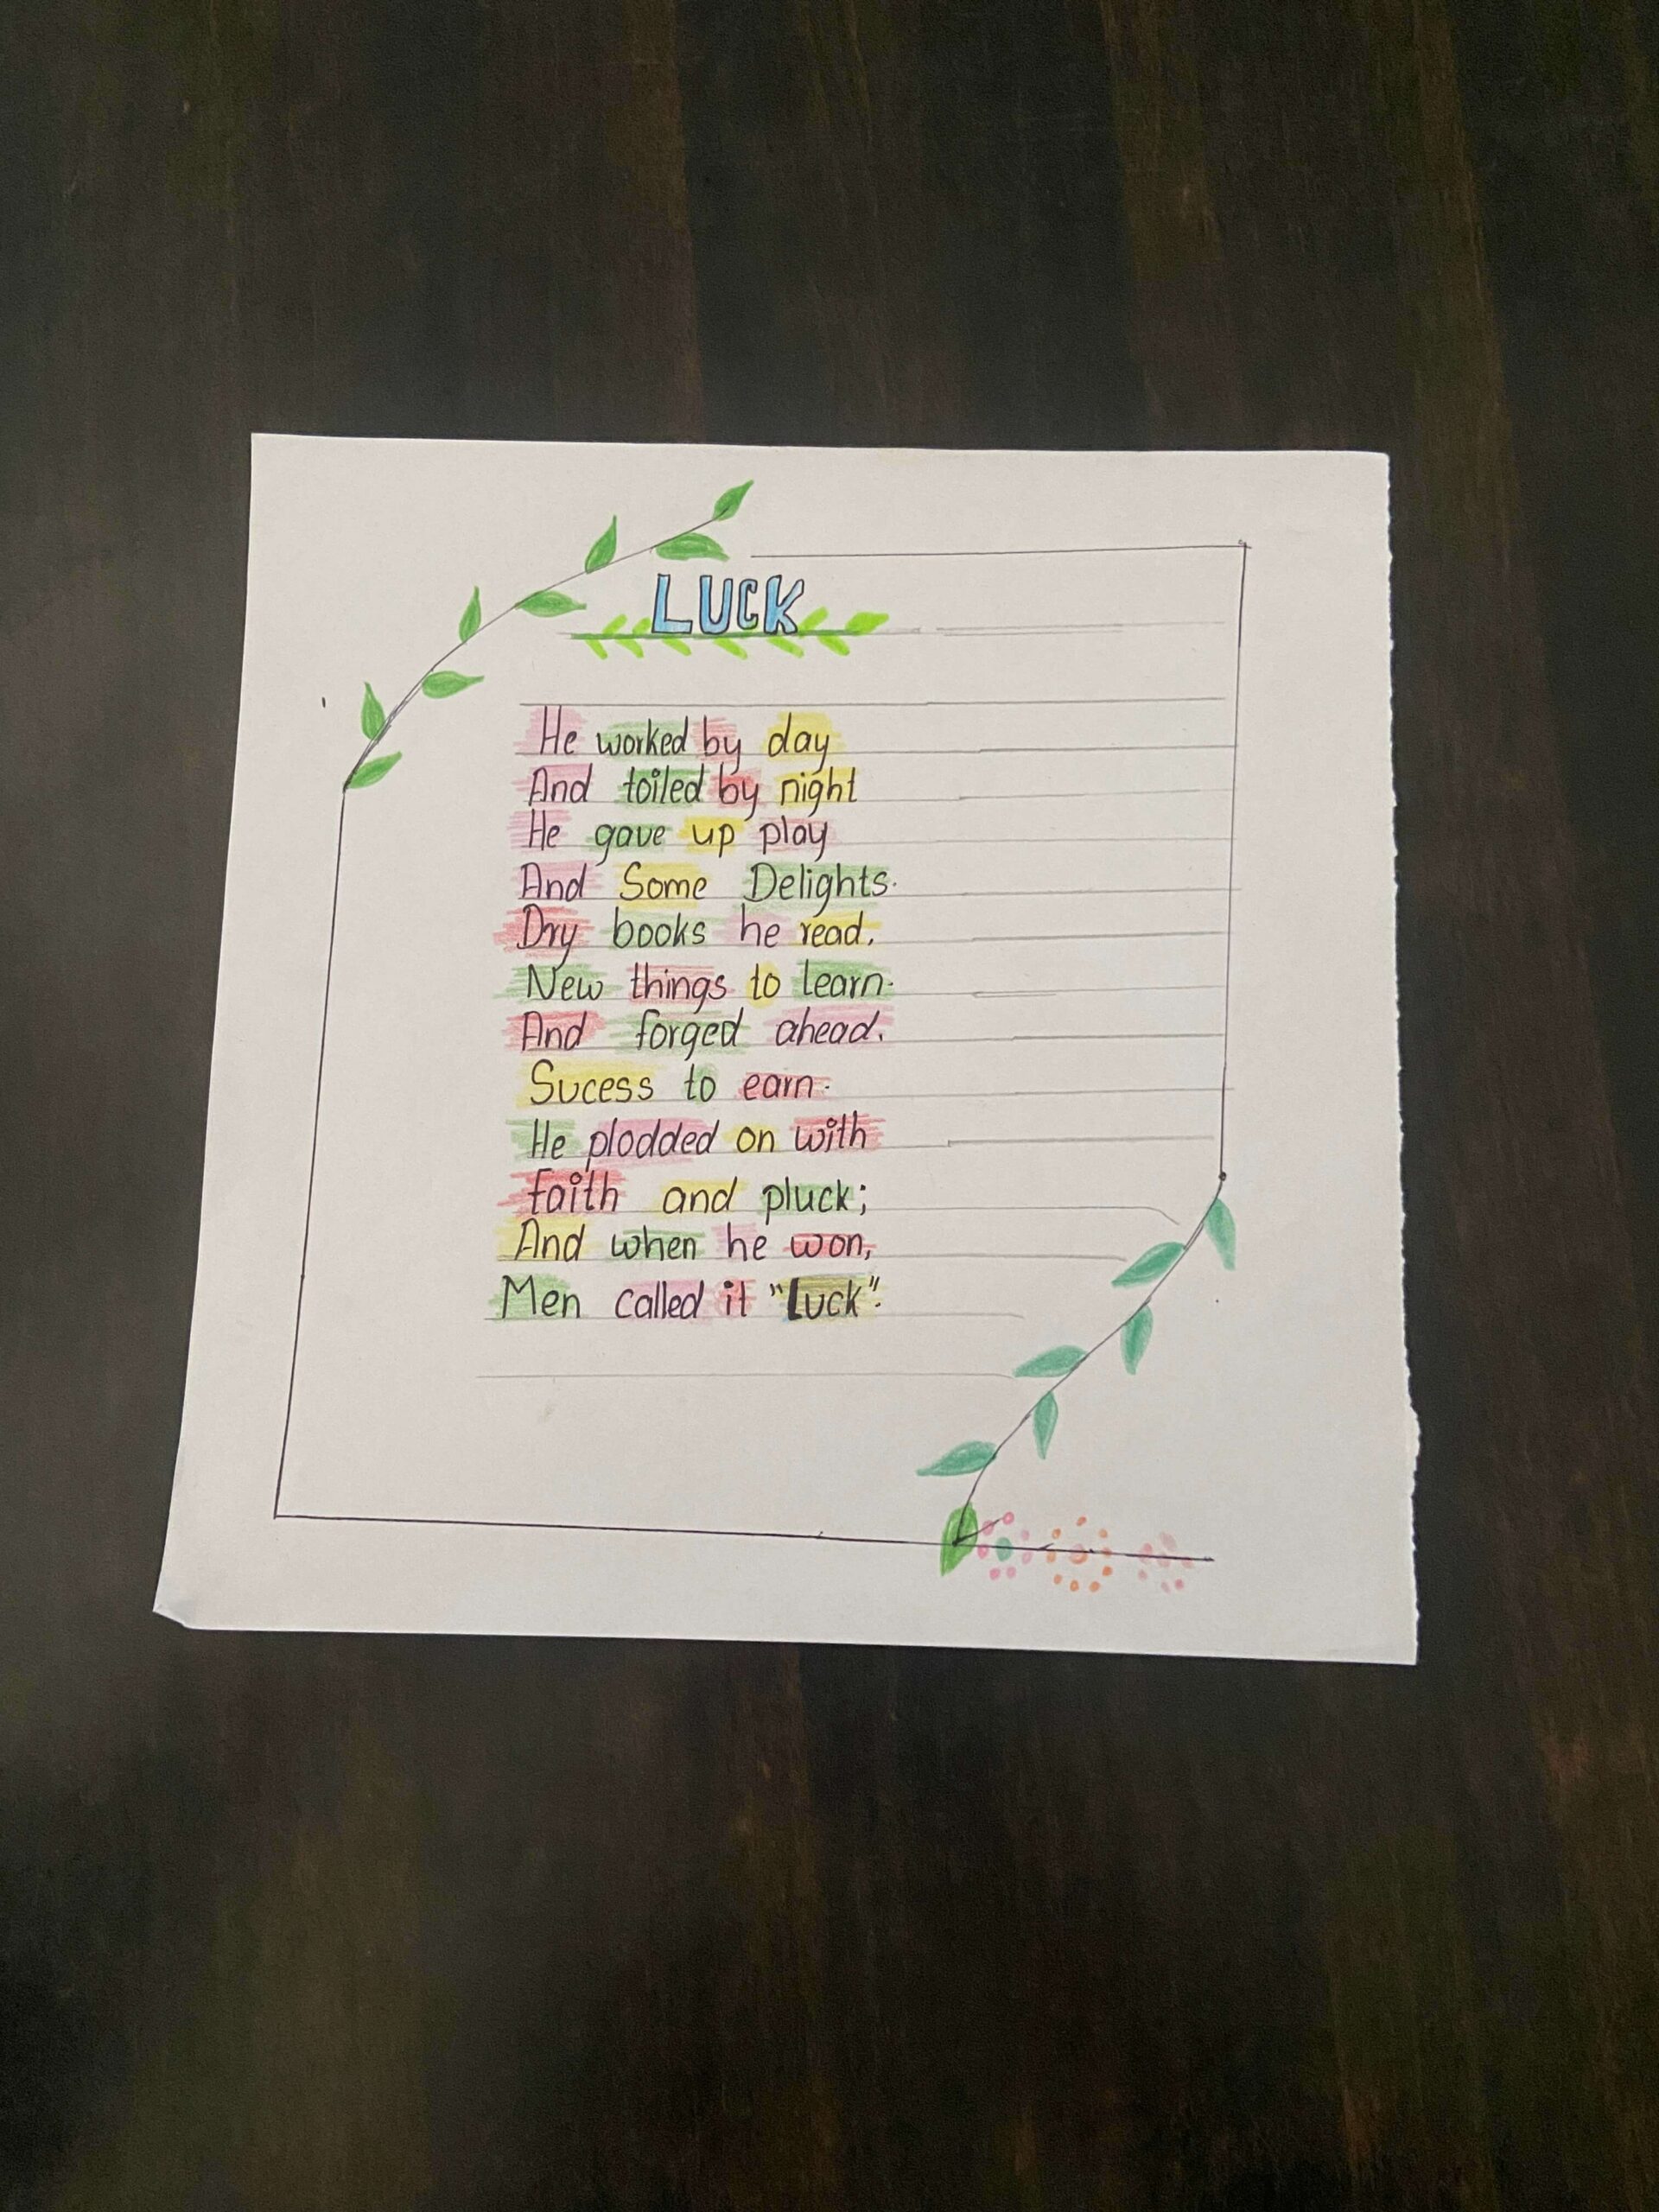 LUCK
He worked by day
And toiled by night
He gave up play
And Some Delights.
Dry books he read.
New things to learn.
And forged ahead.
Sucess to earn.
He plodded on with
faith and pluck;
And when he won,
Men called it "Luck".